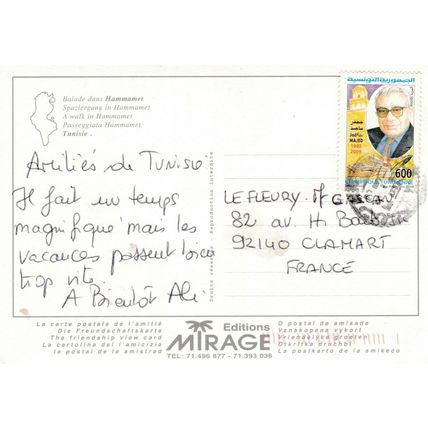 Balade dans Hammamet
Spaziergang in Hammamet
A walk in Hammamet
Passeggiata Hammamet
Tunisie .
Amitiés de Tunisie
Il fait un temps
magnifique mais les
vacances passent
trop vite.
A Bientôt Ali
الجمهورية التونسية
MAJED
600
LE FLEURY
82 av. H.
92140 CLAMART
FRANCE
La carte postale de l'amitié
Die Freundschaftskarte
The friendship view card
La cartolina del l'amicizia
la postal de la amistrad
Editions
MIRAGE
TEL: 71.496 877 - 71.393 036
O postal de amisade
Venskapens vykort
Vriendelijke groeten
La postkarto de la amikeco